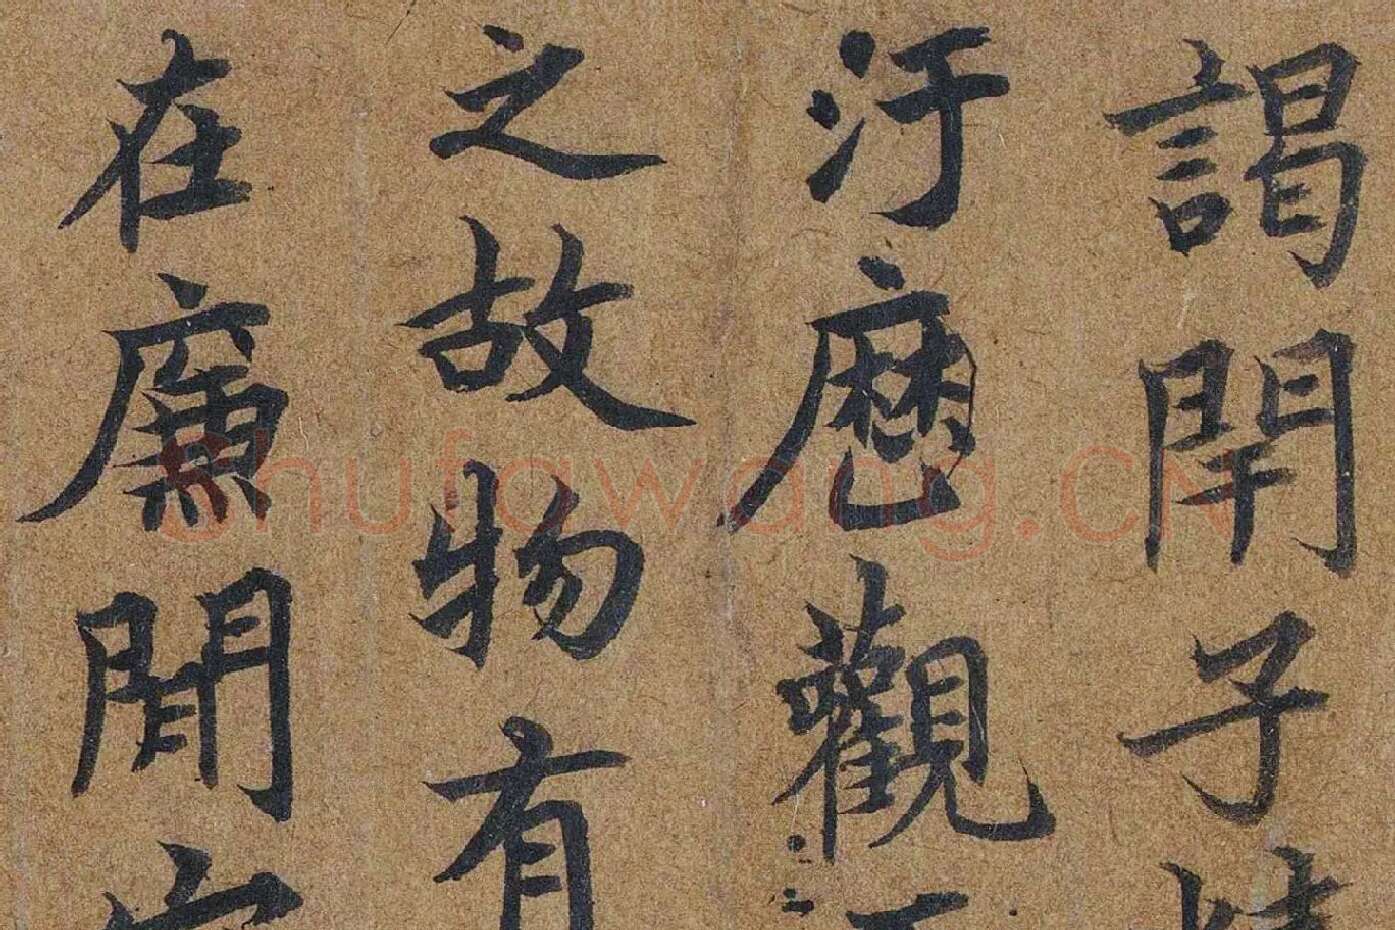 謁子
汙歷觀
之故物有
在廉閒
shufawang.CN